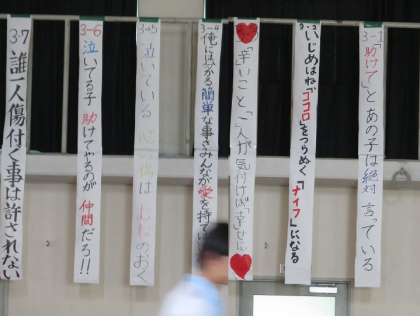 3-1 「助けて」とあの子は絶対言っている
いじめはねココロをつらぬく「ナイフ」になる
「辛い」こと 一人が気付けば「幸せ」に
3-4 俺にはわかる簡単な事さみんなが愛を持て
3-5 泣いている 心の傷は
のおく
3-6 泣いてる子 助けてやるのが 仲間だろ!!
3-7 誰一人傷付く事は許されない